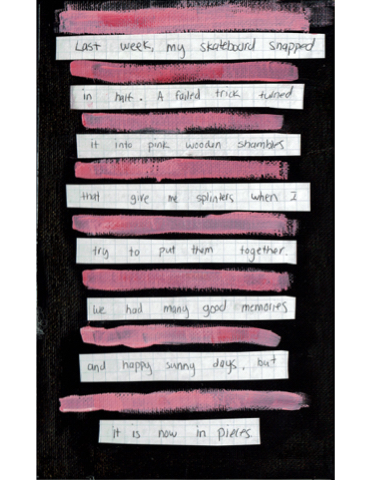 Last week, my skateboard snapped
in half. A failed trick turned
it into pink wooden shambles
that give me splinters when I
try to put them together.
we had many good memories
and happy sunny days, but
it is now in pieces.